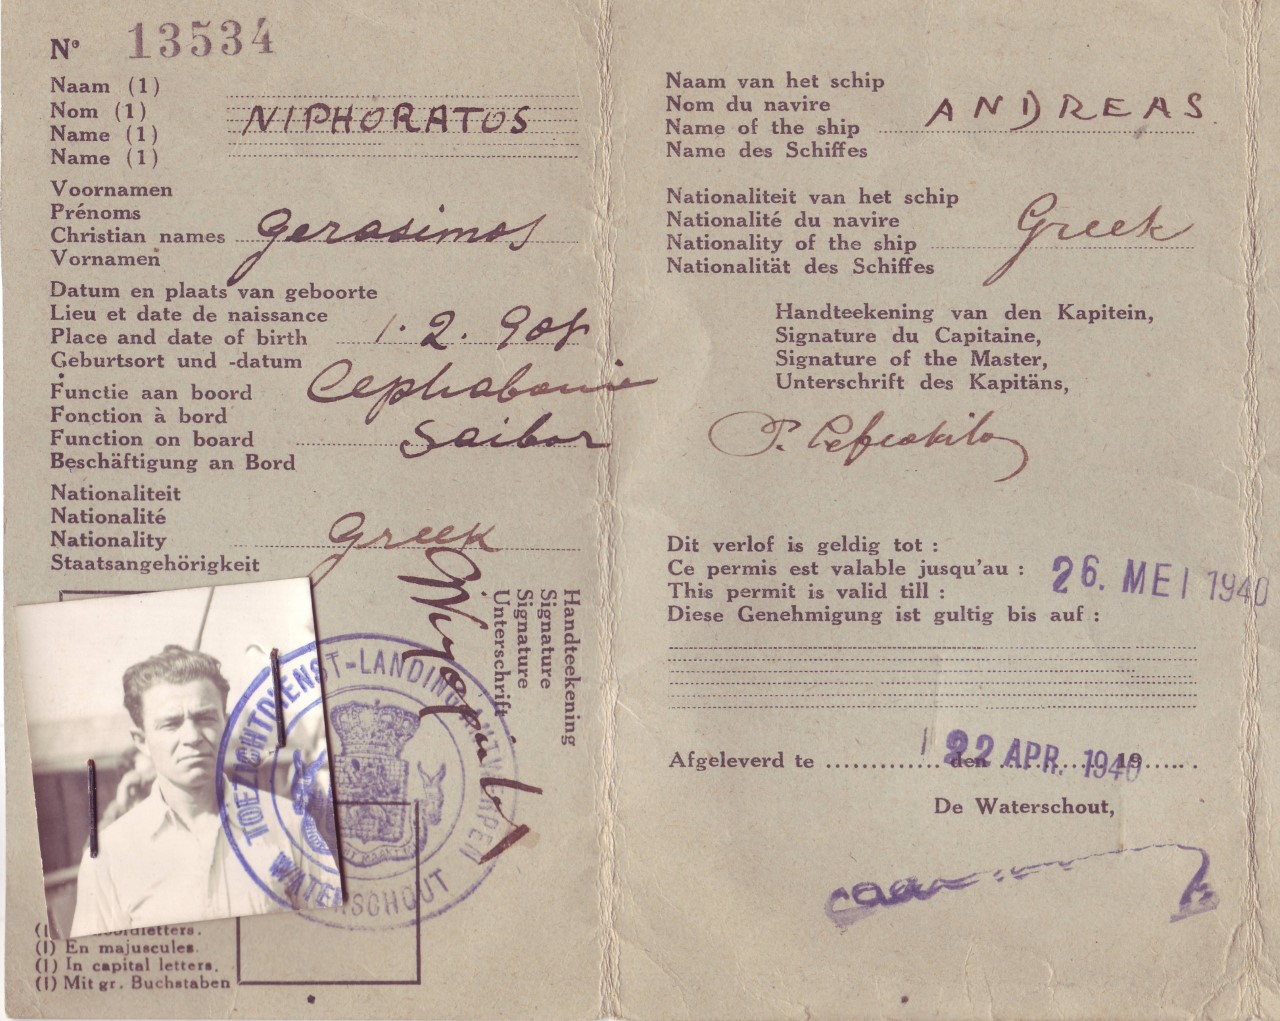 Nº 13534
Naam (1)
Nom (1)
Name (1)
Name (1)
NIPHORATOS
Voornamen
Prénoms
Christian names
Vornamen
Gerasimos
Datum en plaats van geboorte
Lieu et date de naissance
Place and date of birth
Geburtsort und -datum
1.2.908
Cephalonie
Functie aan boord
Fonction à bord
Function on board
Beschäftigung an Bord
Sailor
Nationaliteit
Nationalité
Nationality
Staatsangehörigkeit
Greek
Handteekening
Signature
Signature
Unterschrift
TOEZICHTDIENST-LANDING ANTWERPEN
WATERSCHOUT
(1)
(1) En majuscules.
(1) In capital letters.
(1) Mit gr. Buchstaben
Naam van het schip
Nom du navire
Name of the ship
Name des Schiffes
ANDREAS
Nationaliteit van het schip
Nationalité du navire
Nationality of the ship
Nationalität des Schiffes
Greek
Handteekening van den Kapitein,
Signature du Capitaine,
Signature of the Master,
Unterschrift des Kapitäns,
Dit verlof is geldig tot :
Ce permis est valable jusqu'au :
This permit is valid till :
Diese Genehmigung ist gultig bis auf :
26. MEI 1940
Afgeleverd te ............. den ............ 19......
22 APR. 1940
De Waterschout,